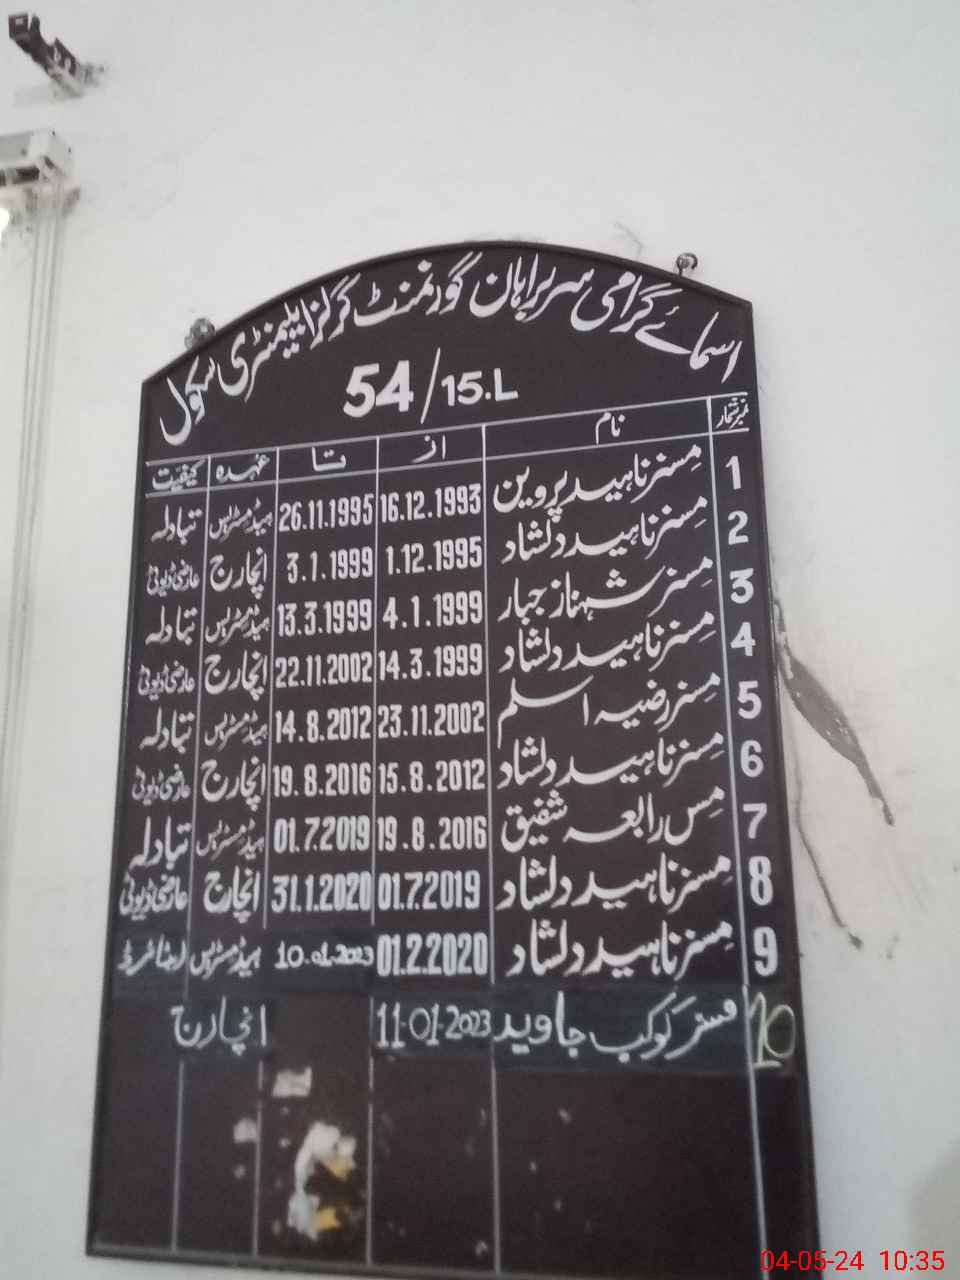 اسمائے گرامی سربراہان گورنمنٹ گرلز ایلیمنٹری سکول
54/15.L
نمبر شمار نام از تا عہدہ کیفیت
1 مسز ناہید پروین 16.12.1993 26.11.1995 ہیڈ مسٹریس تبادلہ
2 مسز ناہید دلشاد 1.12.1995 3.1.1999 انچارج عارضی ڈیوٹی
3 مسز شہناز جبار 4.1.1999 13.3.1999 ہیڈ مسٹریس تبادلہ
4 مسز ناہید دلشاد 14.3.1999 22.11.2002 انچارج عارضی ڈیوٹی
5 مسز رضیہ اسلم 23.11.2002 14.8.2012 ہیڈ مسٹریس تبادلہ
6 مسز ناہید دلشاد 15.8.2012 19.8.2016 انچارج عارضی ڈیوٹی
7 مس رابعہ شفیق 19.8.2016 01.7.2019 ہیڈ مسٹریس تبادلہ
8 مسز ناہید دلشاد 01.7.2019 31.1.2020 انچارج عارضی ڈیوٹی
9 مسز ناہید دلشاد 01.2.2020 10.01.2023 ہیڈ مسٹریس ریٹائرڈ
10 مسز کوکب جاوید 11-01-2023 انچارج
04-05-24 10:35